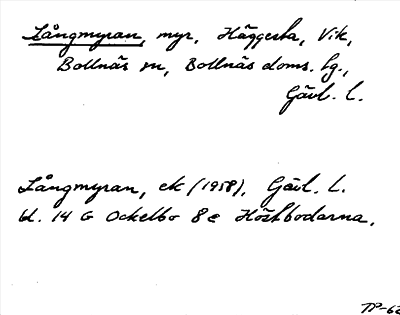 Långmyran, myr, Häggesta, Vik,
Bollnäs sn, Bollnäs doms. lg.,
Gävl. l.
Långmyran, ek (1958), Gävl. L.
bl. 14 G Ockelbo 8 e Höstbodarna.
PP-62